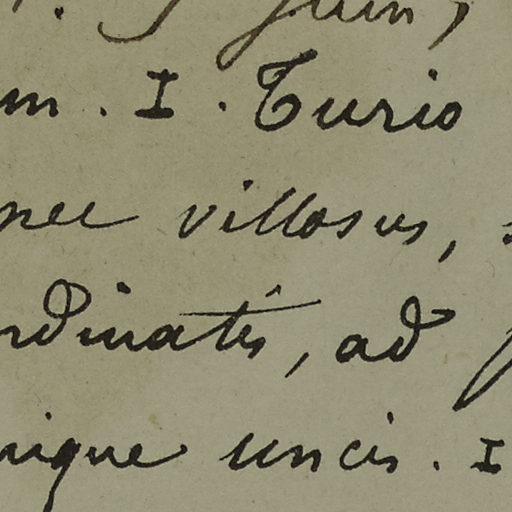 m. I. Turio
nec villosus,
rdinatis, ad
nique uncis. I